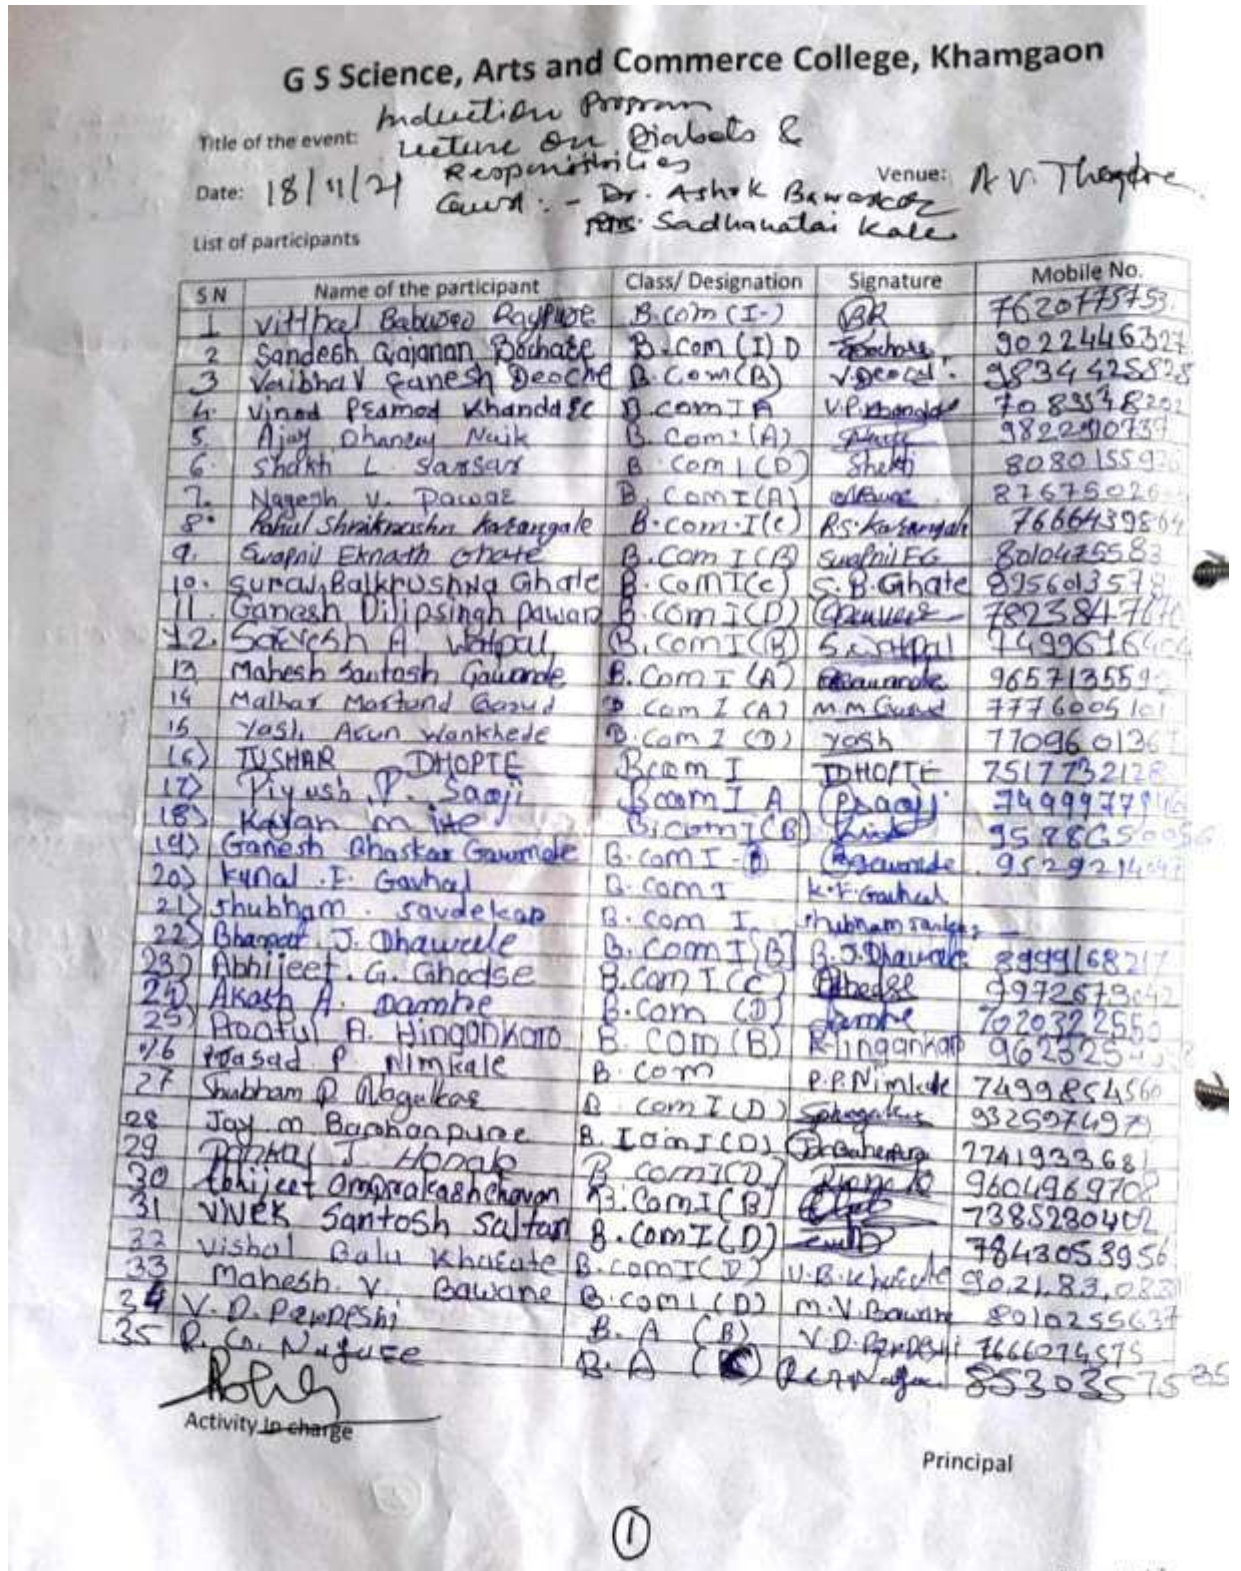 G S Science, Arts and Commerce College, Khamgaon
Induction Program
Title of the event: Lecture on Diabets &
Responsibilities
Date: 18/11/21 Guest :- Dr. Ashok Bawaskar Venue: A V. Theatre
Mrs. Sadhanatai Kale
List of participants
S N Name of the participant Class/ Designation Signature Mobile No.
1 Vitthal Baburao Raypure B.com (I-) BR 7620775753
2 Sandesh Gajanan Bochare B.Com (I) D 9022446327
3 Vaibhav Ganesh Deoche B.Com(B) 9834425828
4. Vinod Pramod Khandare B.com I A
5. Ajay Naik B. Com (A)
6. Shakti L. Sarsar B. Com I (D) Shakti 8080155
7. Nagesh V. Pawar B. Com I (A) 8767502
8. Rahul Shrikrushn Karangale B.com.I(C) R.S. Karangale 7666439864
9. Swapnil Eknath Ghate B.Com I (B) Swapnil EG 8010475583
10. Suraj Balkrushna Ghate B.Com I(C) S.B.Ghate 8956013578
11. Ganesh Dilipsingh Pawar B.Com I(D) 7823847
12. Sarvesh A Watpal B.Com I(B) S.Watpal 7499616404
13 Mahesh Santosh Gawande B.Com I (A) Gawande 965713559
14 Malhar Martand Garud B.Com I (A) M M Garud 7776005101
15 Yash Arun Wankhede B.Com I (D) Yash 770960136
16) TUSHAR DHOPTE Bcom I TDHOPTE 7517732128
17) Piyush P. Saoji Bcom I A P.saoji 749997
18) Karan m B.com I(B) 95886500
19) Ganesh Bhaskar Gawande B.com I - B Gawande 9529214
20) Kunal .F. Gavhal B.com I
21) Shubham . Savdekar B.com I.
22) J. Dhawale B.Com I(B) B.J.Dhawale 8999168217
23) Abhijeet. G. Ghodse B.Com I (C) 9972673042
24) Akash A. Dambe B.Com (D) Dambe 7020322550
25) A. Hingankar B. Com (B) Hingankar 962325
26 Prasad P. Nimkale B. Com P.P.Nimkale 7499854560
27 Shubham Nagulkar B Com I (D) 9325974979
28 Jay m B. Com I(D) 7741933681
29 Pankaj J. Honale B Com I(D) 9604969708
30 Abhijeet Omprakash Chavan B.Com I(B) 7385280402
31 VIVEK Santosh Saltan B.Com I(D) 7843053956
32 Vishal Balu Kharate B.com I(D) V.B.Kharate 902183083
33 Mahesh. V. Bawane B.com I (D) M.V.Bawane 8010255637
34 V.D. Pardeshi B. A (B) V.D.Pardeshi 7666074575
35 R. G. Nagure B. A
Activity In charge
Principal
1